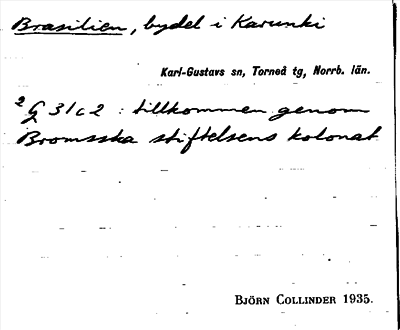 Brasilien, bydel i Karunki
Karl-Gustavs sn, Torneå tg, Norrb. län.
2 G 31 c 2 : tillkommen genom
Bromsska stiftelsens kolonat
BJÖRN COLLINDER 1935.